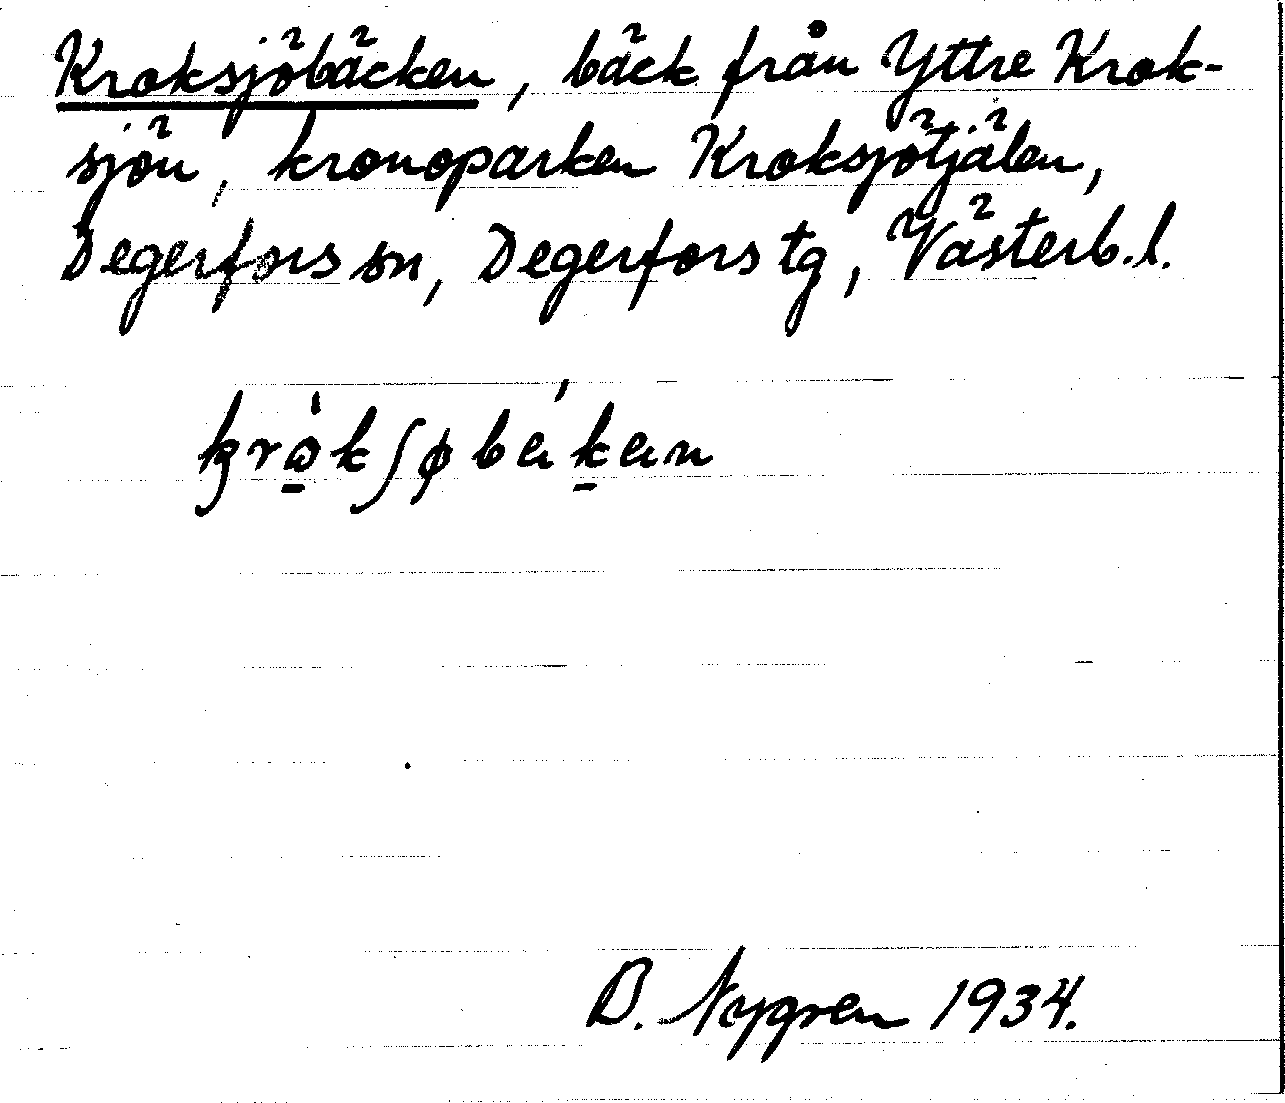 Kroksjöbäcken, bäck från Yttre Krok-
sjön, kronoparken Kroksjötjälen,
Degerfors sn, Degerfors tg, Västerb. l.
B. Nygren 1934.